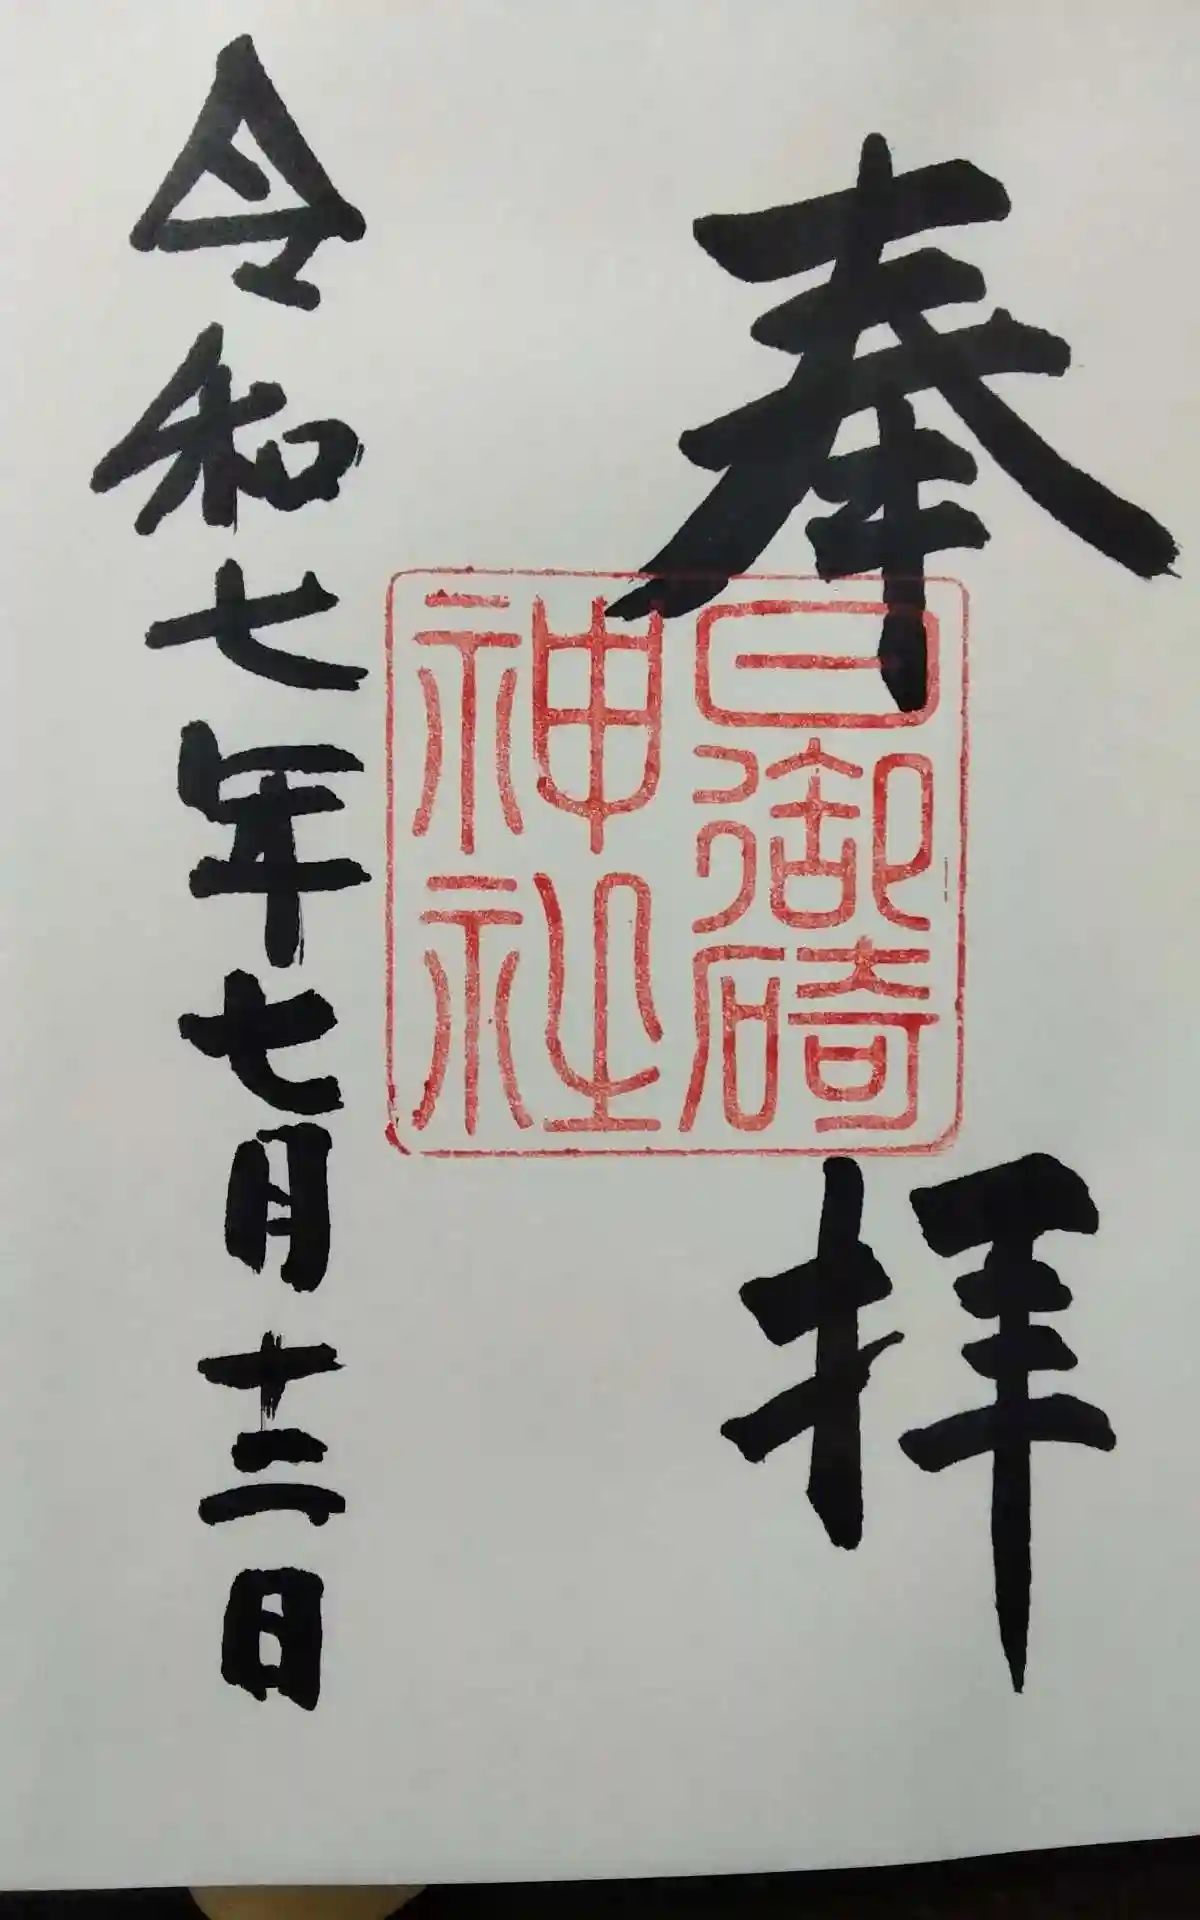 奉拝
日御碕
神社
令和七年七月十二日